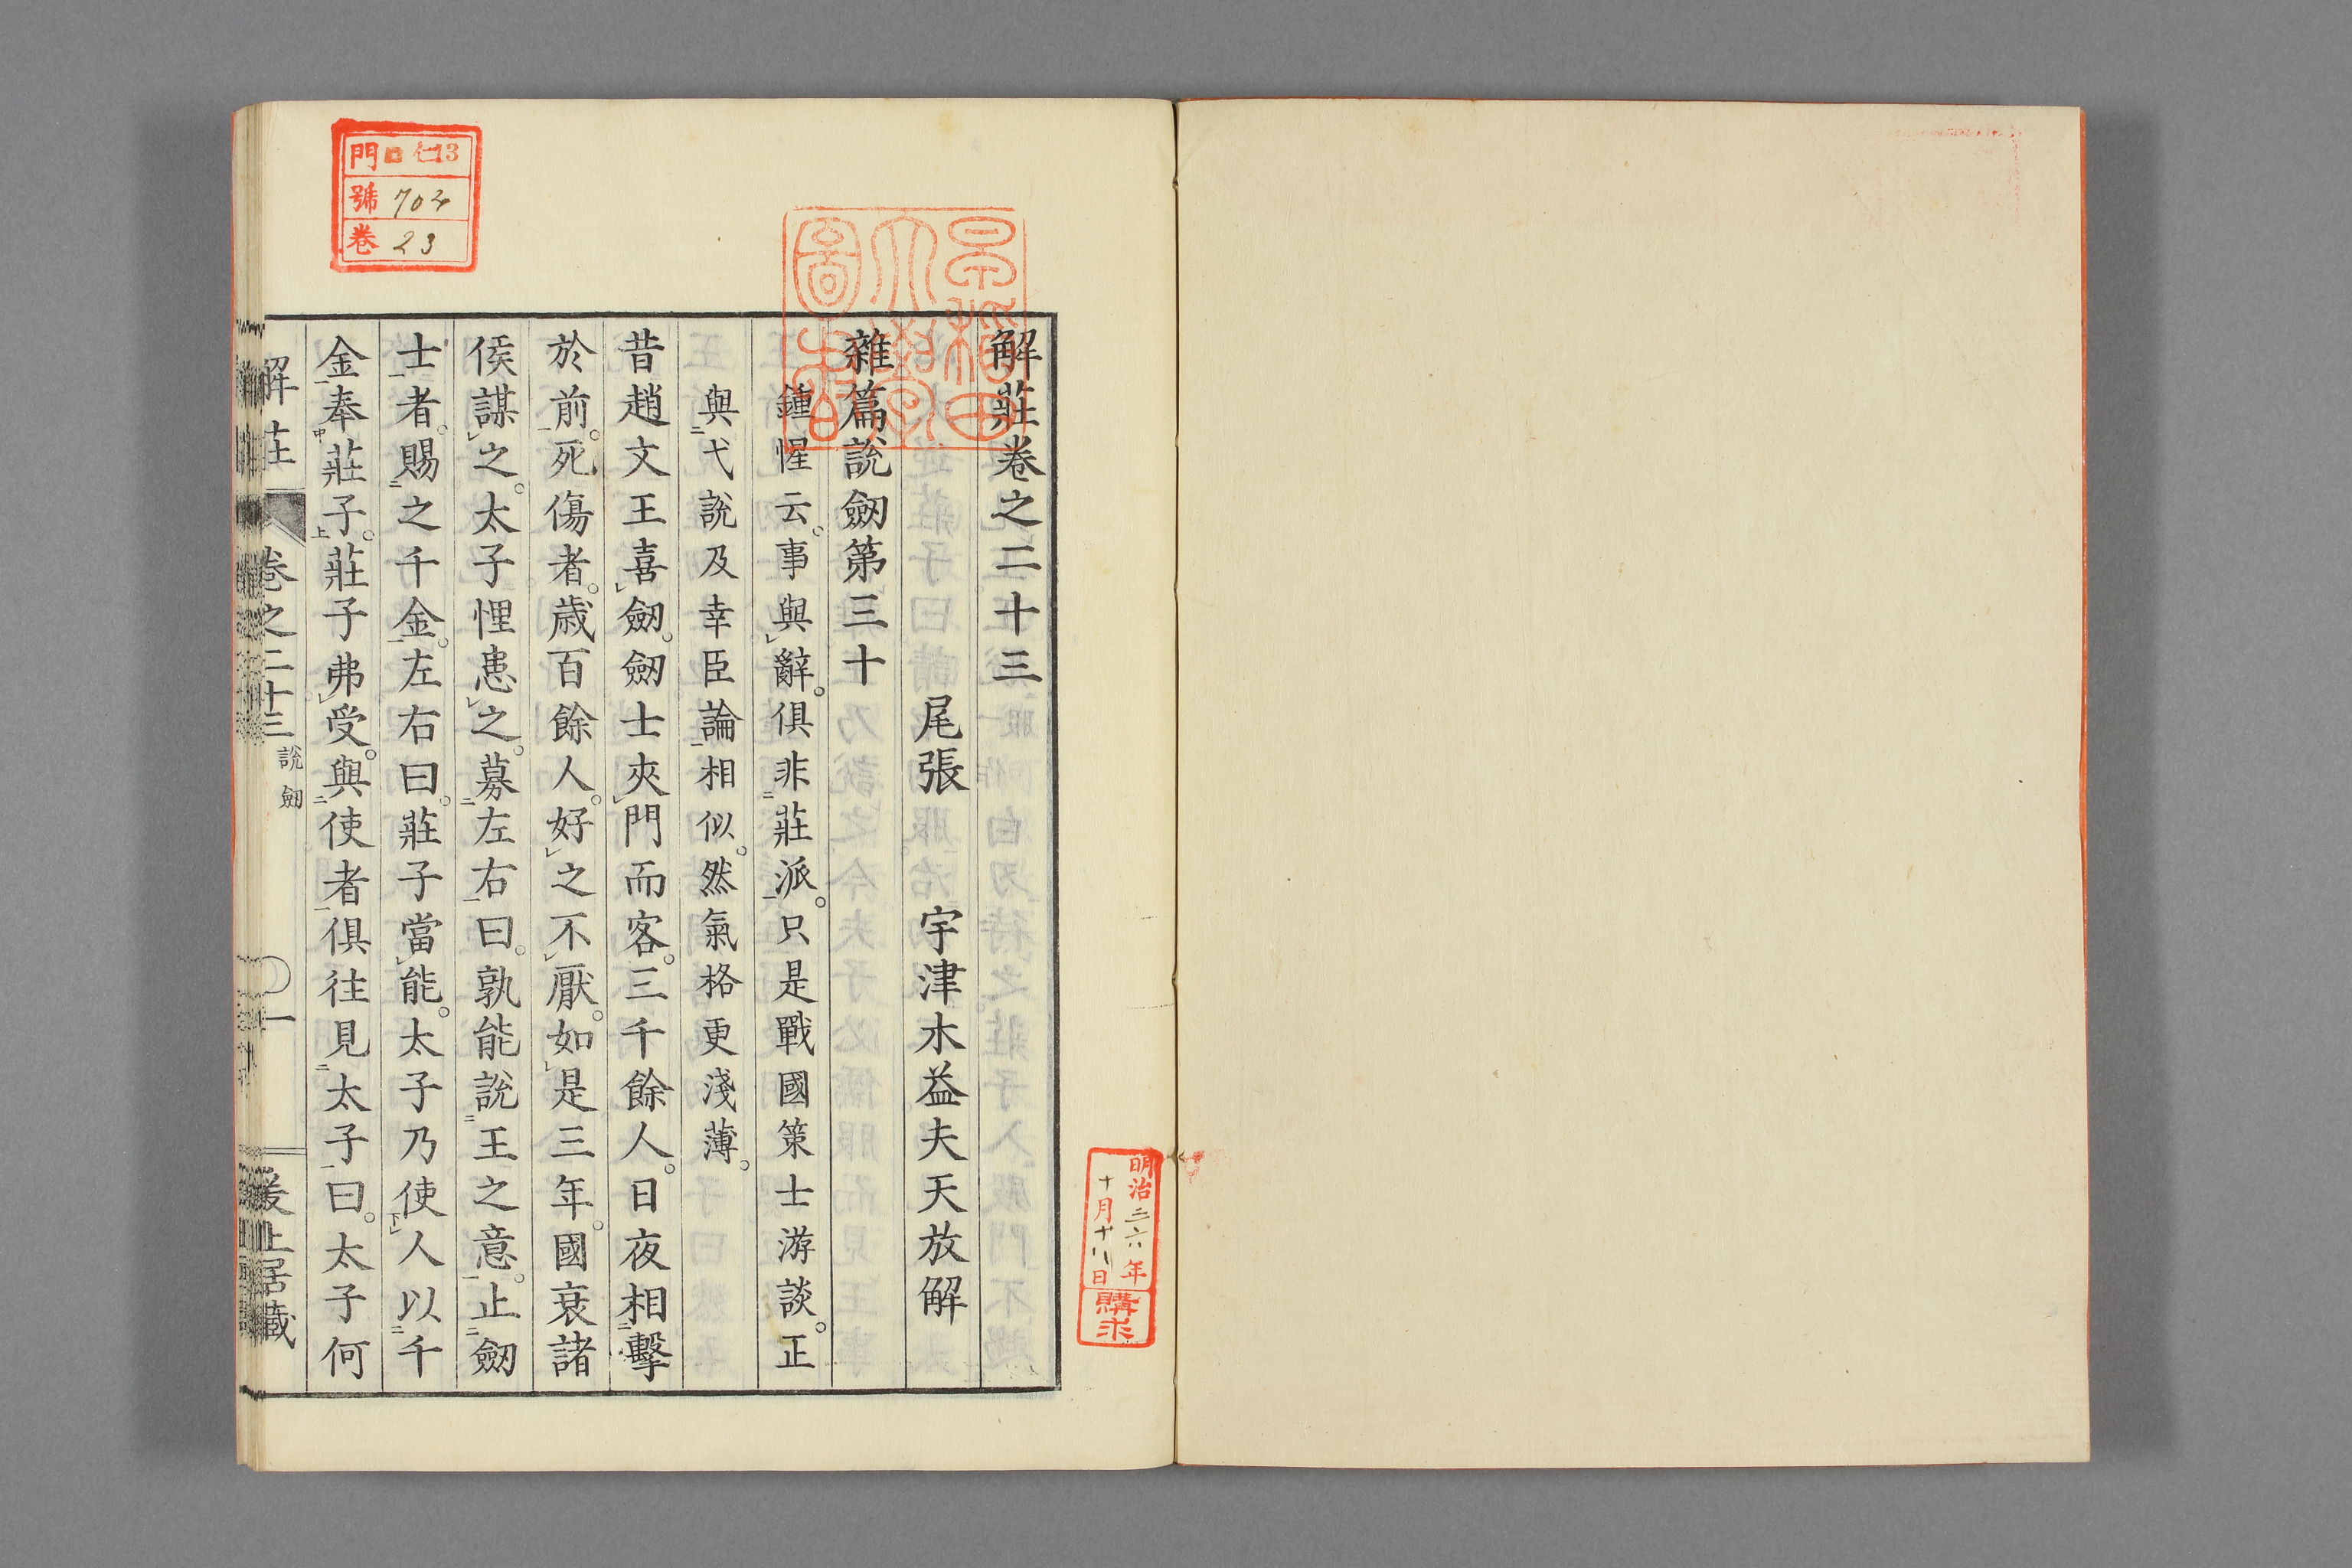 明治三六年
十月十八日
購求
解莊卷之二十三
尾張　宇津木益夫天放解
雜篇說劒第三十
鍾惺云。事與辭。俱非莊派。只是戰國策士游談。正
與弋說及幸臣論相似。然氣格更淺薄。
昔趙文王喜劒。劒士夾門而客。三千餘人。日夜相擊
於前。死傷者。歲百餘人。好之不厭。如是三年。國衰諸
侯謀之。太子悝患之。募左右曰。孰能說王之意。止劒
士者。賜之千金。左右曰。莊子當能。太子乃使人以千
金奉莊子。莊子弗受。與使者俱往見太子曰。太子何
解莊　卷之二十三　說劒　一
門 仁13
號 704
卷 23